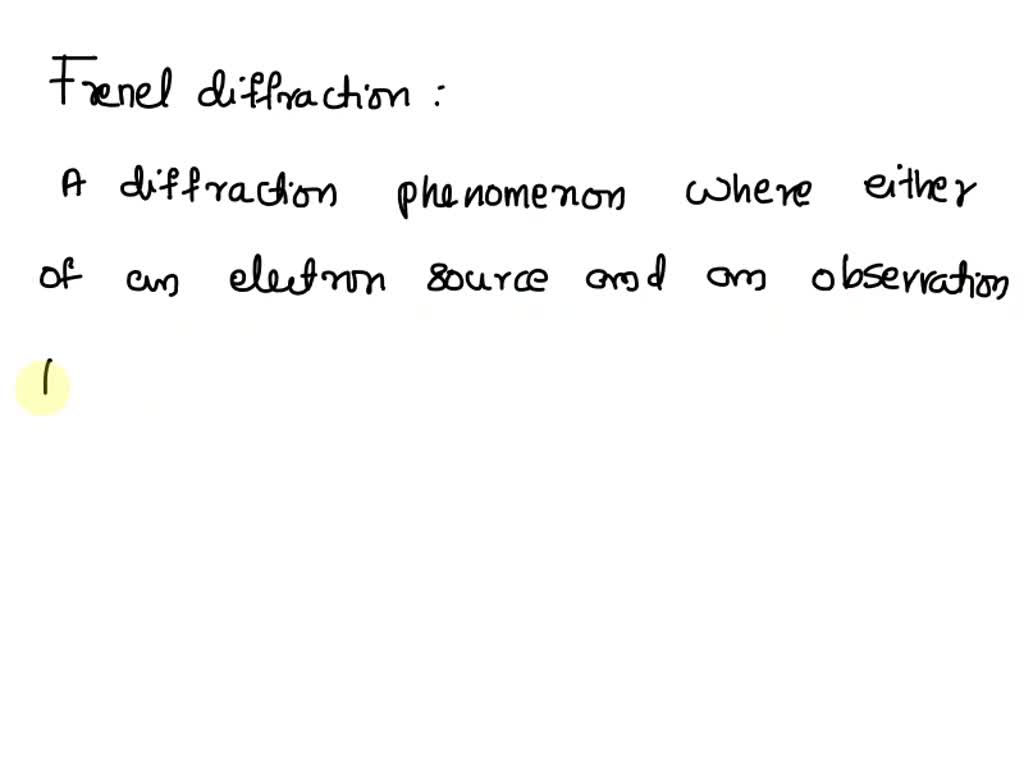 Frenel diffraction :
A diffraction phenomenon where either
of an electron source and an observation